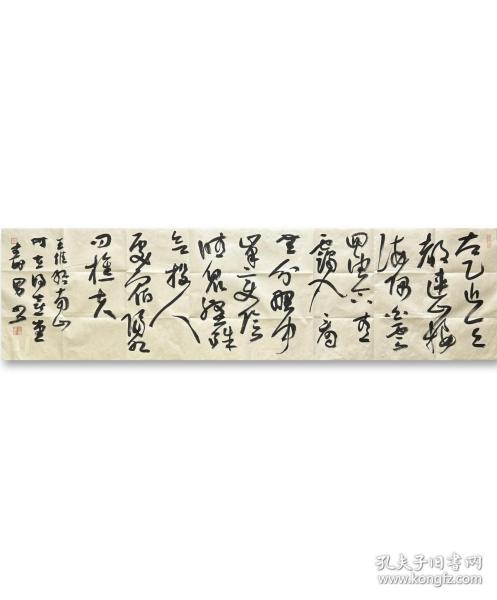 太乙近天
都連山接
海隅白雲
回望合青
靄入看
無分野中
峰變陰
晴眾壑殊
欲投人
處宿隔水
問樵夫
王維終南山
孔夫子旧书网
www.kongfz.com